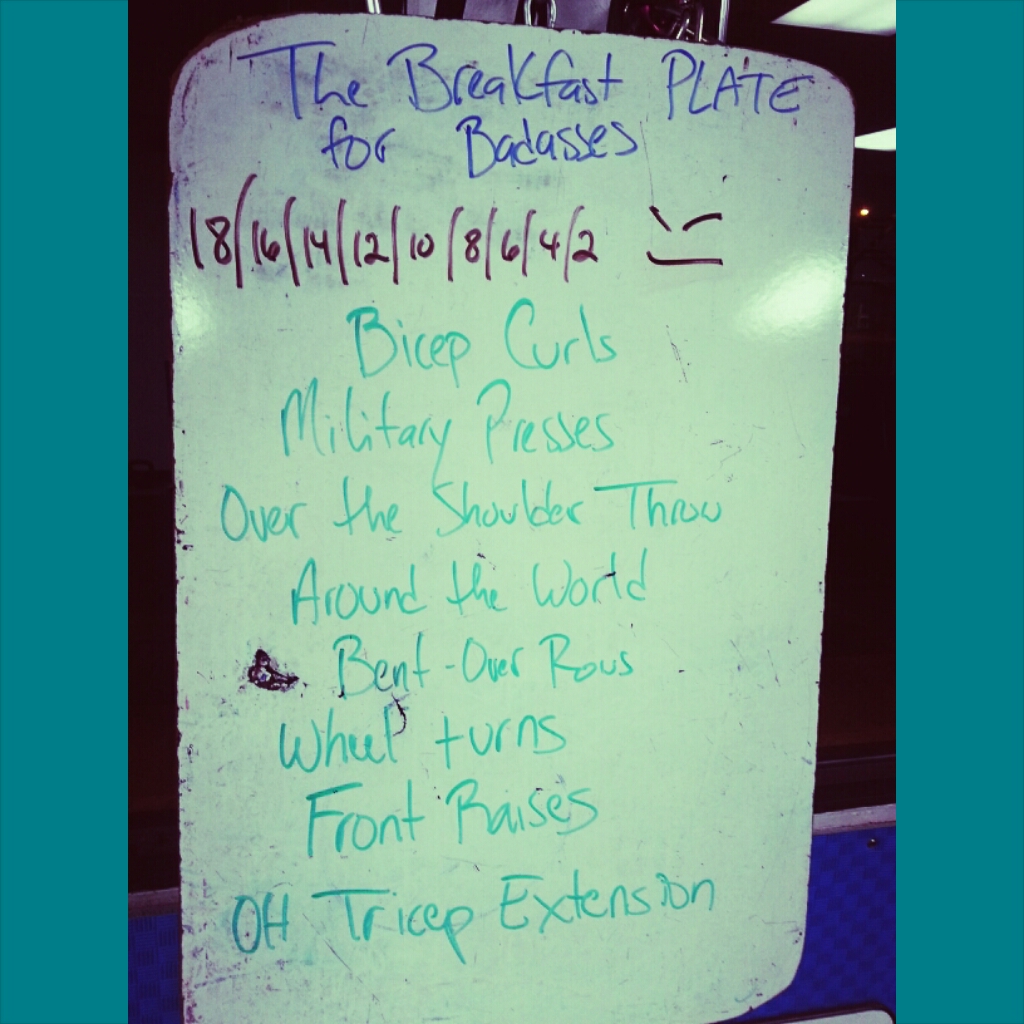 The Breakfast PLATE
for Badasses
18/16/14/12/10/8/6/4/2
Bicep Curls
Military Presses
Over the Shoulder Throw
Around the World
Bent-Over Rows
Wheel turns
Front Raises
OH Tricep Extension